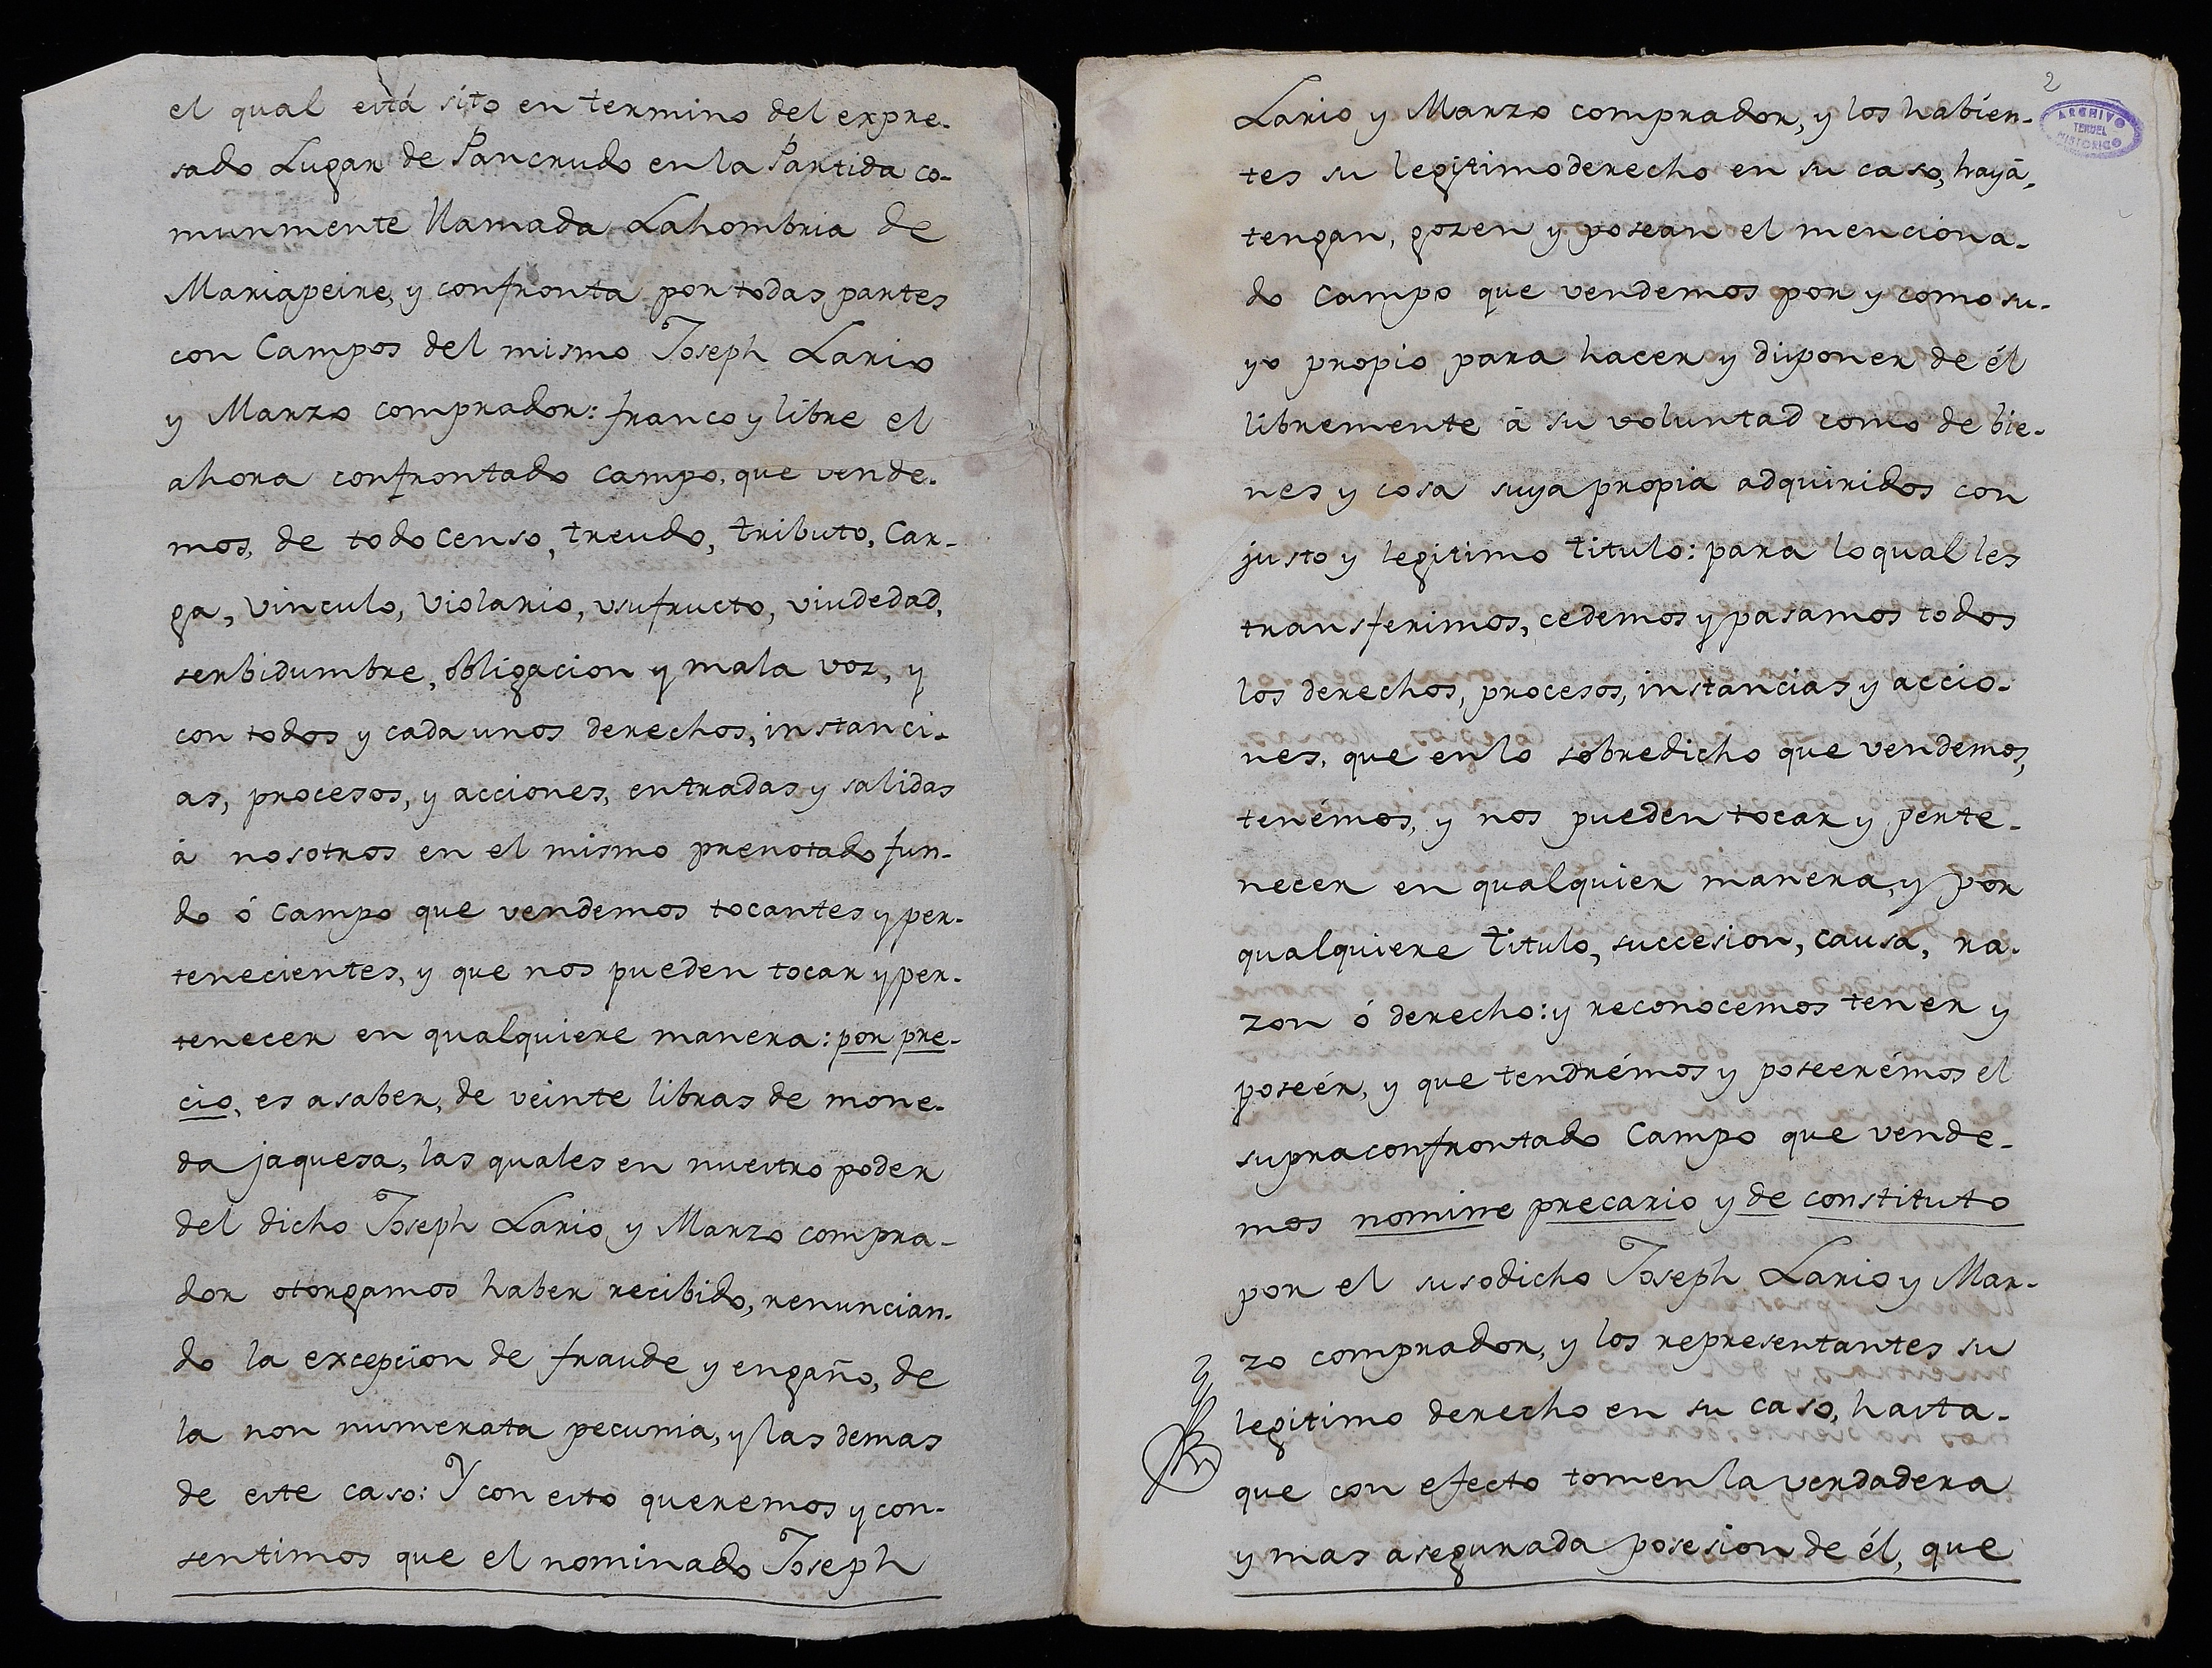 el qual está sito en termino del expre-
sado Lugar de Pancrudo en la Partida co-
munmente llamada Lahombria de
Mariapeire, y confronta por todas partes
con Campos del mismo Joseph Lario
y Marzo comprador: franco y libre el
ahora confrontado campo, que vende-
mos, de todo Censo, treudo, tributo, Car-
ga, vinculo, violario, vsufructo, viudedad,
serbidumbre, obligacion y mala voz, y
con todos y cada unos derechos, instanci-
as, procesos, y acciones, entradas y salidas
á nosotros en el mismo prenotado fun-
do ó Campo que vendemos tocantes y per-
tenecientes, y que nos pueden tocar y per-
tenecer en qualquiere manera: por pre-
cio, es a saber, de veinte libras de mone-
da jaquesa, las quales en nuestro poder
del dicho Joseph Lario y Marzo compra-
dor otorgamos haber recibido, renuncian-
do la excepcion de fraude y engaño, de
la non numerata pecunia, y las demas
de este caso: Y con esto queremos y con-
sentimos que el nominado Joseph
2
ARCHIVO
TERUEL
HISTORICO
Lario y Marzo comprador, y los habien-
tes su legitimo derecho en su caso, hayā,
tengan, gozen y posean el menciona-
do Campo que vendemos por y como su-
yo propio para hacer y disponer de él
libremente á su voluntad como de bie-
nes y cosa suya propia adquiridos con
justo y legitimo titulo: para lo qual les
transferimos, cedemos y pasamos todos
los derechos, procesos, instancias y accio-
nes, que en lo sobredicho que vendemos,
tenémos, y nos pueden tocar y perte-
necer en qualquier manera, y por
qualquiere titulo, succesion, causa, ra-
zon ó derecho: y reconocemos tener y
poseér, y que tendrémos y poseerémos el
supraconfrontado Campo que vende-
mos nomine precario y de constituto
por el susodicho Joseph Lario y Mar-
zo comprador, y los representantes su
legitimo derecho en su caso, hasta-
que con efecto tomen la verdadera
y mas asegurada posesion de él, que